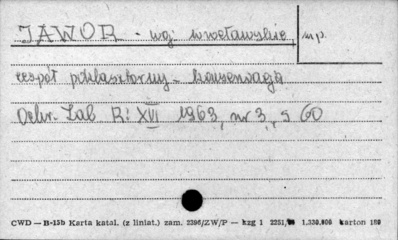 JAWOR - woj. wrocławskie
m.p.
zespół poklasztorny - konserwacja
Ochr. Zab. R: XVI 1963, nr 3, s 60
CWD — B-15b Karta katal. (z liniat.) zam. 2396/ZW/P — kzg 1 2251, 1.330.000 karton 180